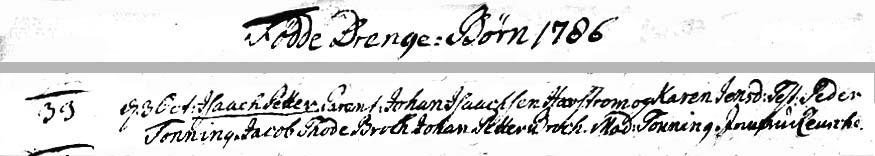 Födde Drenge: Børn 1786
33 d. 3 Oct: Isaach Petter. Parent: Johan Isauchsen Havstrom og Karen Jensd: Test: Peder
Tonning. Jacob Thode Broch Johan Petter Broch. Mad: Tonning.